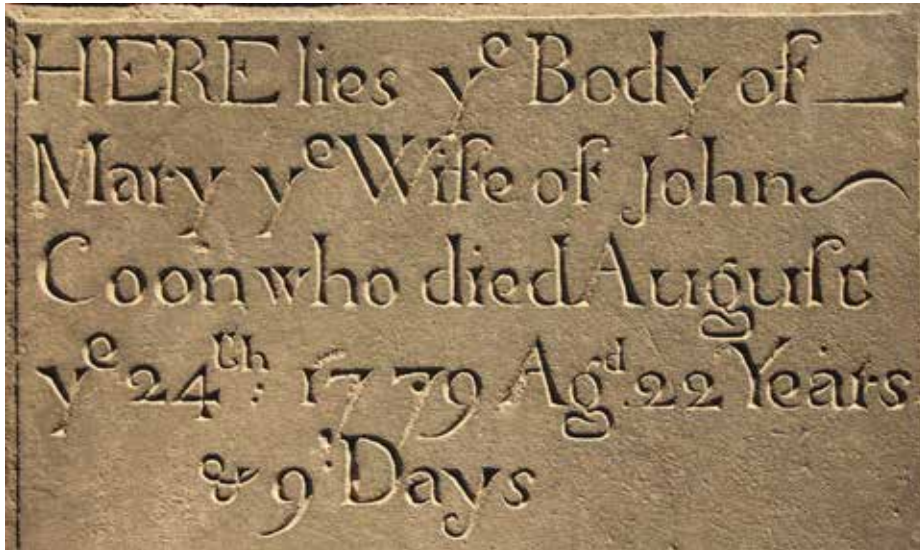 HERE lies yᵉ Body of
Mary yᵉ Wife of John
Coon who died Auguſt
yᵉ 24ᵗʰ: 1779 Agᵈ. 22 Years
& 9' Days